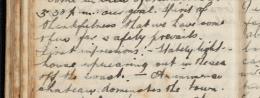 5.30 p.m. our goal. Spirit of
thankfulness that we have come
so far in safety prevails.
First impressions. - Stately light-
house appearing out in sea
off the coast. - An immense
chateau dominates the town.